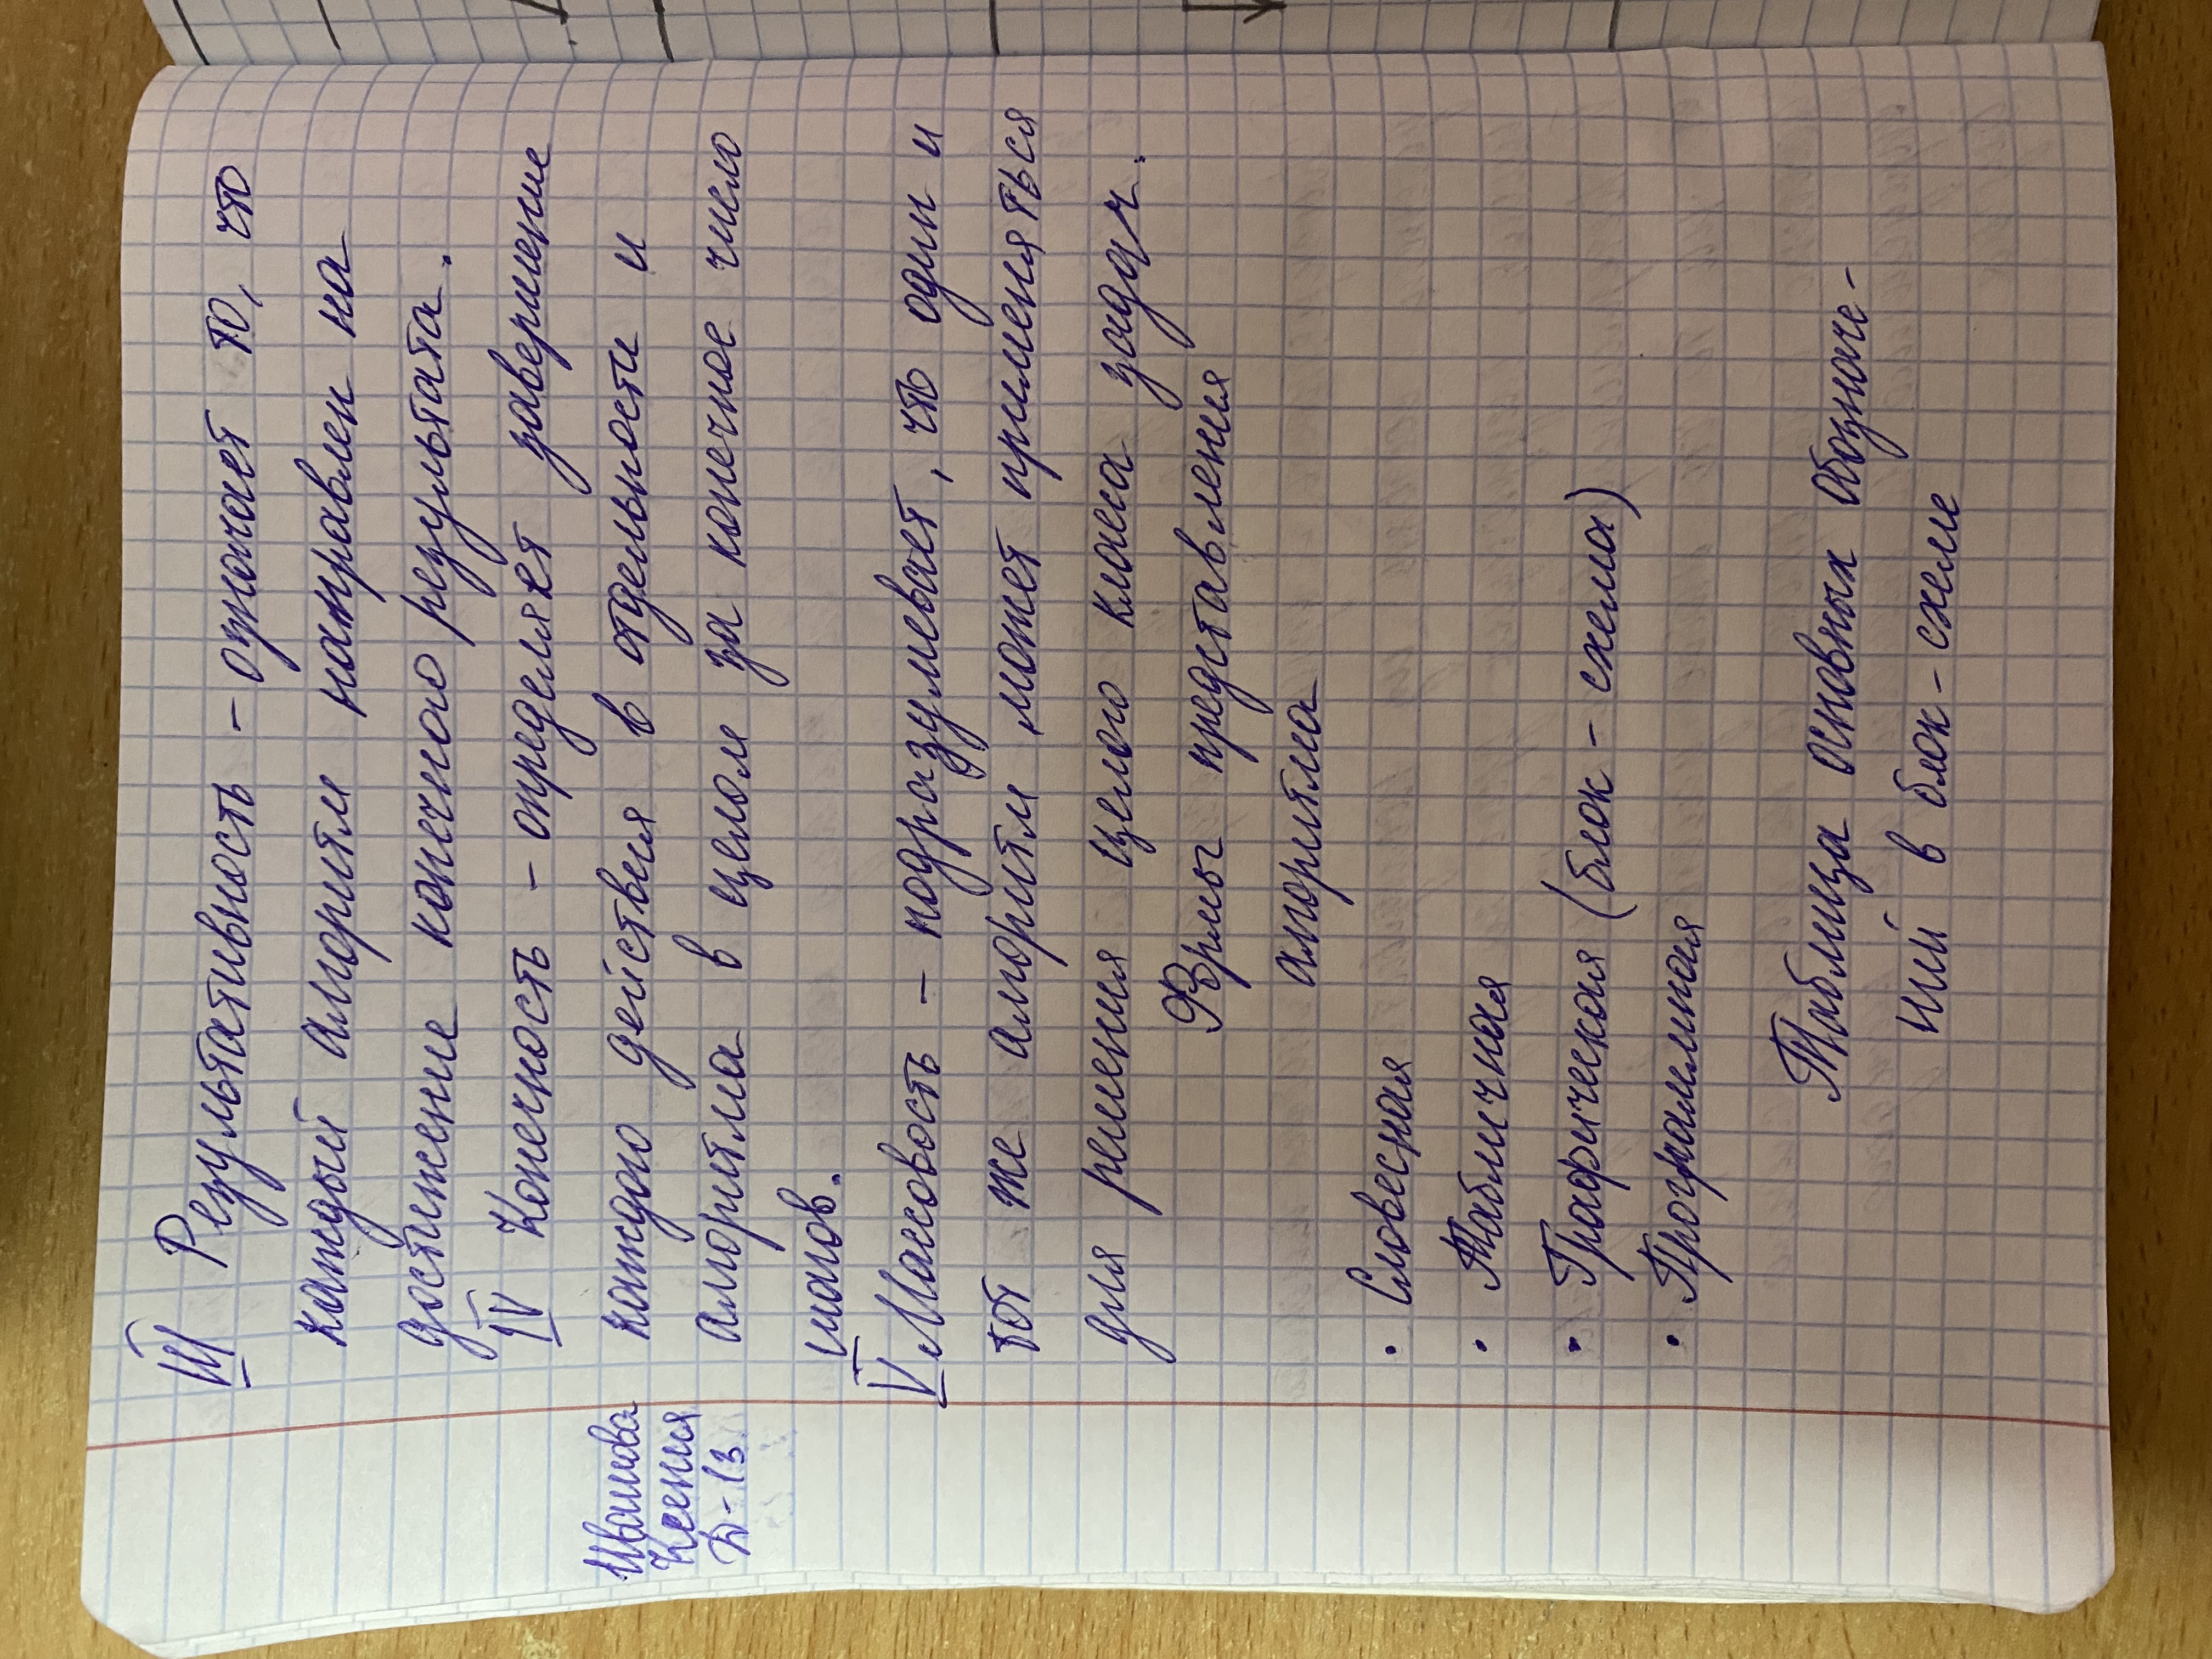 III Результативность - означает то, что
каждый алгоритм направлен на
достижение конечного результата.
IV Конечность - определяет завершение
каждого действия в отдельности и
алгоритма в целом за конечное число
шагов.
V Массовость - подразумевает, что один и
тот же алгоритм может применяться
для решения целого класса задач.
Формы представления
алгоритма
• Словесная
• Табличная
• Графическая (блок-схема)
• Программная
Таблица основных обозначе-
ний в блок-схеме
Ксения
Д-13